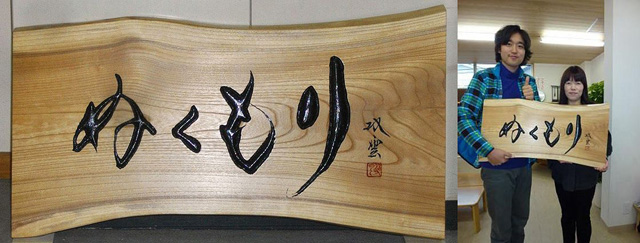 ぬくもり
ぬくもり